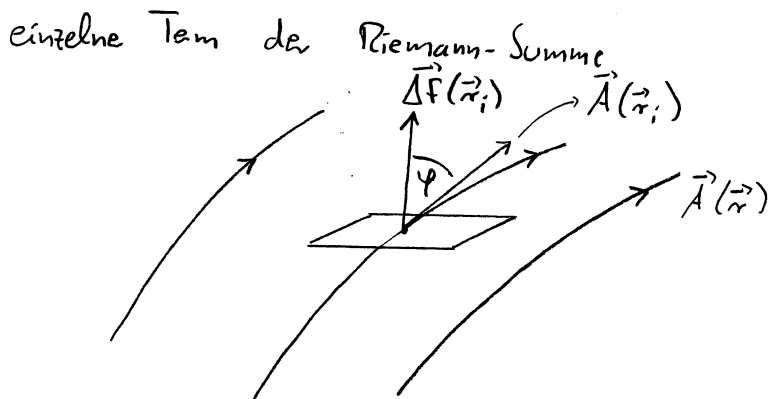 einzelne Term der Riemann-Summe
Δf⃗(r⃗ᵢ)
A⃗(r⃗ᵢ)
φ
A⃗(r⃗)